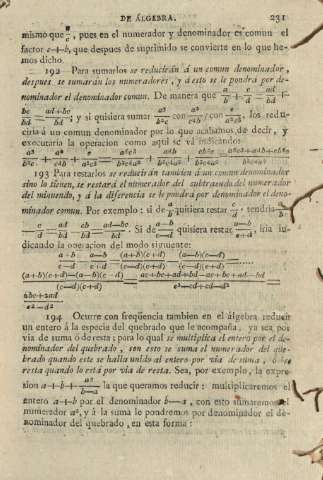 DE ÁLGEBRA. 231
mismo que, pues en el numerador y denominador es comun el
factor c+b, que despues de suprimido se convierte en lo que he-
mos dicho.
192 Para sumarlos se reducirán á un comun denominador,
despues se sumarán los numeradores, y á esto se le pondrá por de-
nominador el denominador comun. De manera que a/b + c/d = ad/bd +
bc/bd = ad+bc/bd; y si quisiera sumar con con los redu-
ciria á un comun denominador por lo que acabamos de decir, y
executaria la operacion como aqui se vá indicando:
193 Para restarlos se reducirán tambien á un comun denominador
sino lo tienen, se restará el numerador del substraendo del numerador
del minuendo, y á la diferencia se le pondrá por denominador el deno-
minador comun. Por exemplo: si de a/b quisiera restar c/d, tendria a/b
- c/d = ad/bd - cb/bd = ad-bc/bd. Si de a+b/c-d quisiera restar a-b/c+d, iria in-
dicando la operacion del modo siguiente:
a+b/c-d - a-b/c+d = (a+b)(c+d)/(c-d)(c+d) - (a-b)(c-d)/(c-d)(c+d) =
(a+b)(c+d)-(a-b)(c-d)/(c-d)(c+d) = ac+bc+ad+bd-ac+bc+ad-bd/c²-cd+cd-d² =
2bc+2ad/c²-d²
194 Ocurre con freqüencia tambien en el álgebra reducir
un entero á la especie del quebrado que le acompaña, ya sea por
via de suma ó de resta; para lo qual se multiplica el entero por el de-
nominador del quebrado, con esto se suma el numerador del que-
brado quando este se halla unido al entero por via de suma, ó se
resta quando lo está por via de resta. Sea, por exemplo, la expre-
sion a+b+ a²/b-a la que queramos reducir: multiplicaremos el
entero a+b por el denominador b-a, con esto sumaremos el
numerador a², y á la suma le pondremos por denominador el de-
nominador del quebrado, en esta forma: